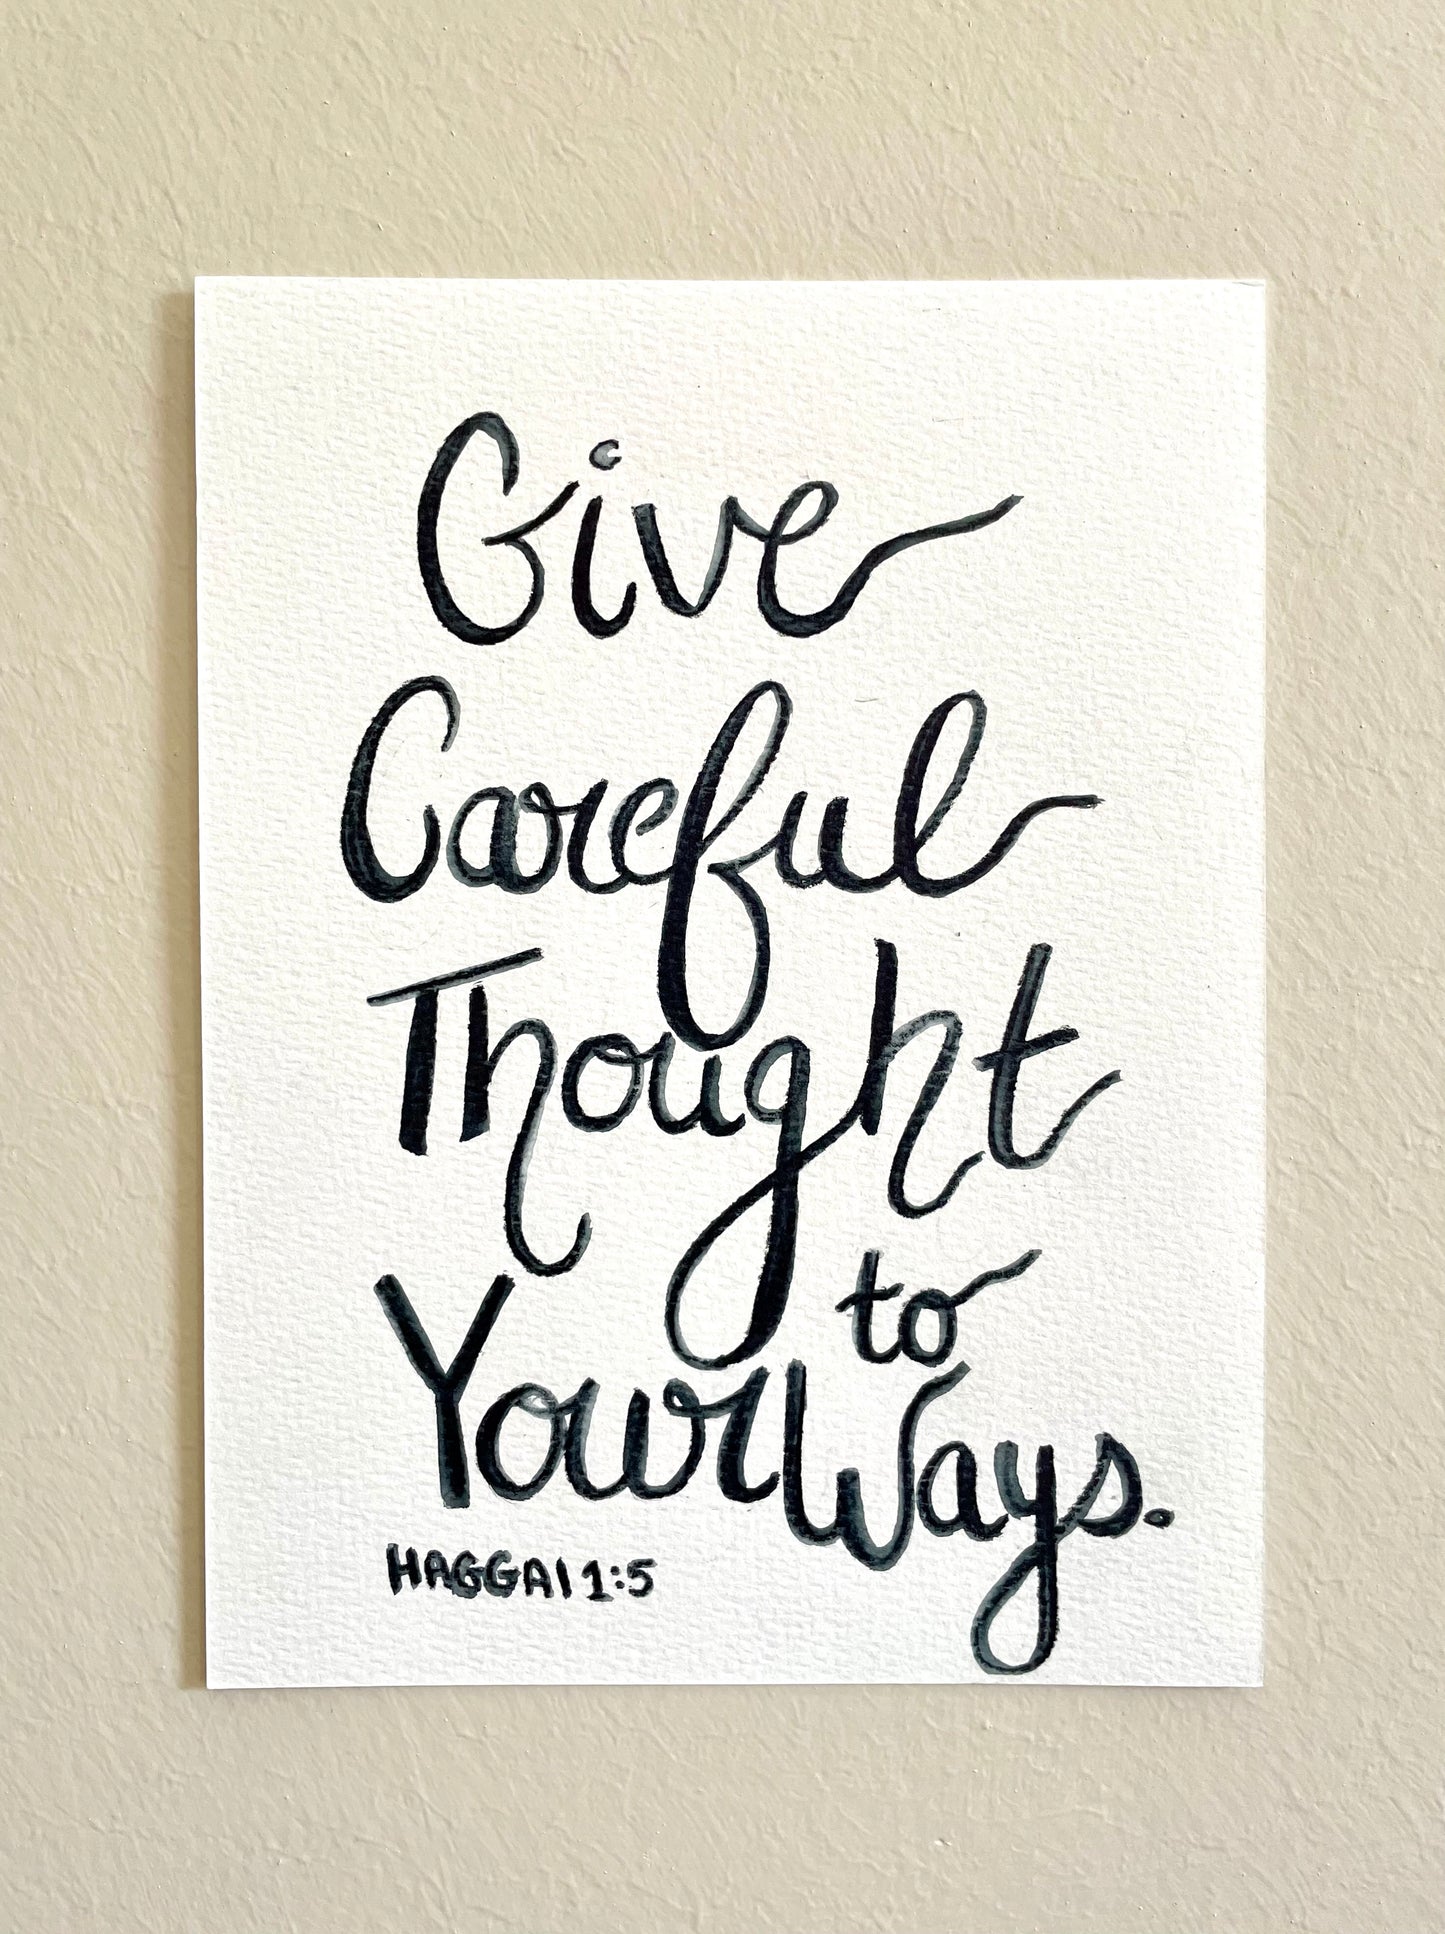 Give
Careful
Thought
to
Your Ways.
HAGGAI 1:5